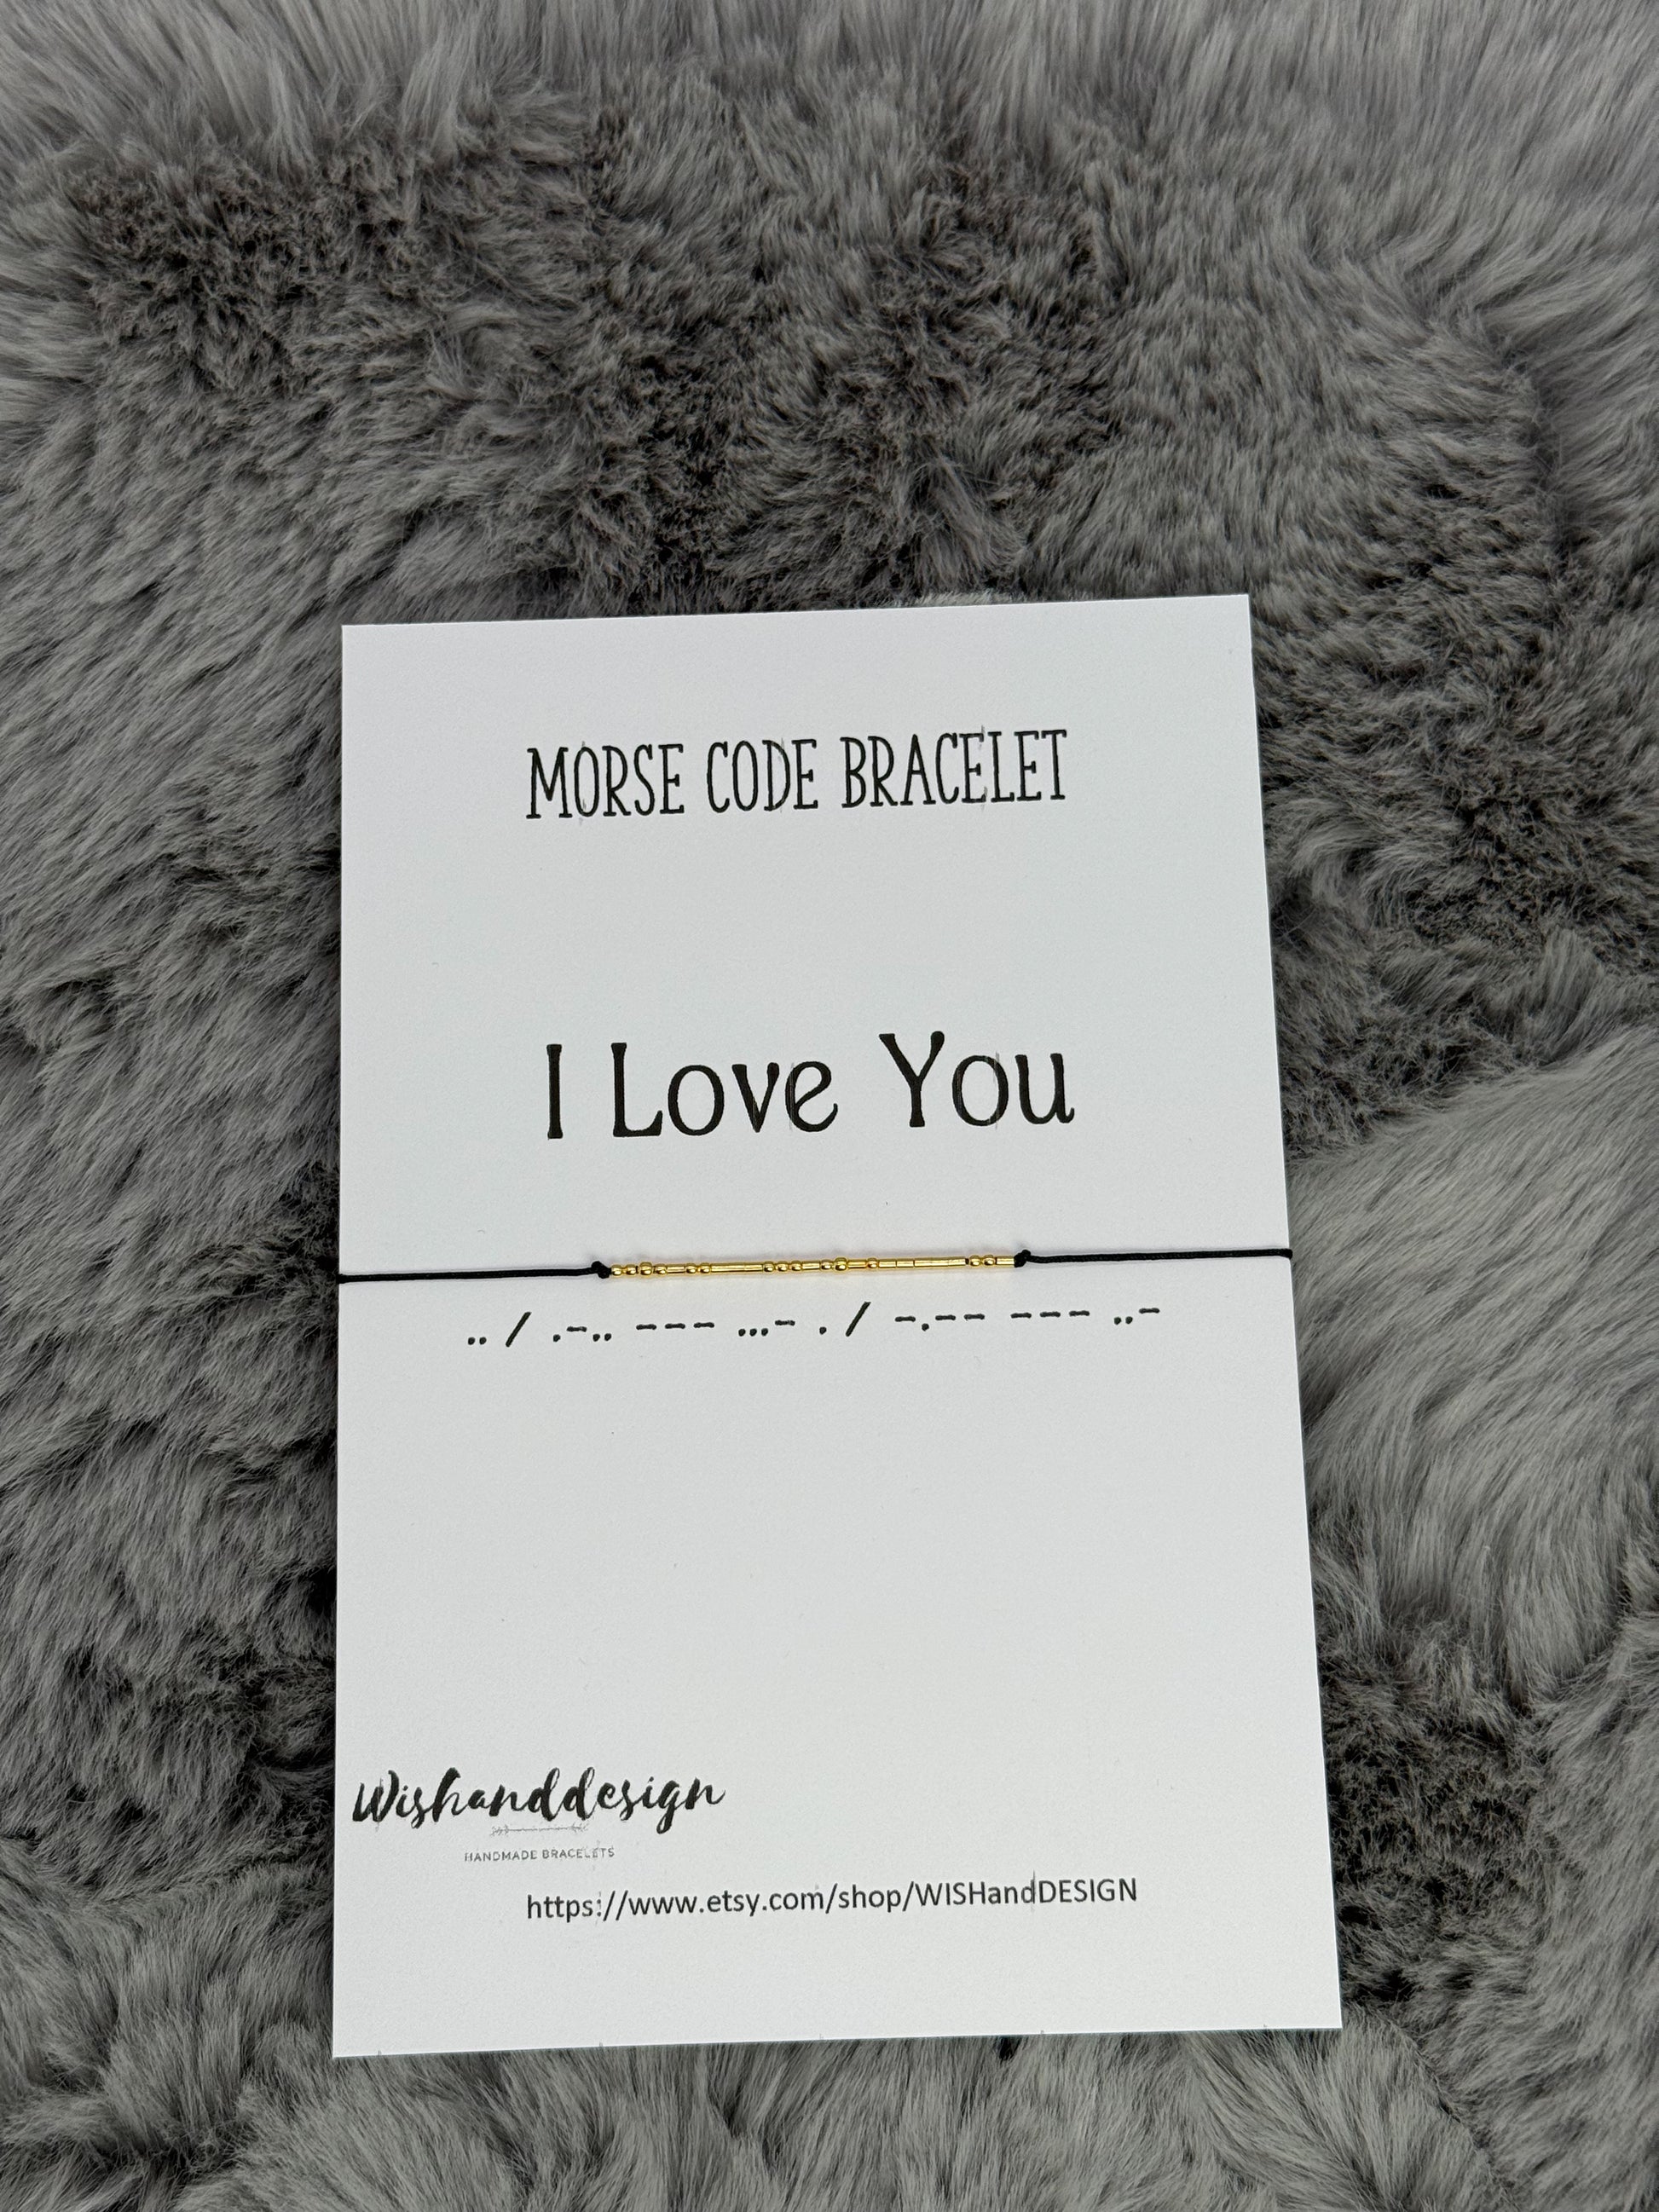 MORSE CODE BRACELET
I Love You
.. / .-.. --- ...- . / -.-- --- ..-
Wishanddesign
HANDMADE BRACELETS
https://www.etsy.com/shop/WISHandDESIGN